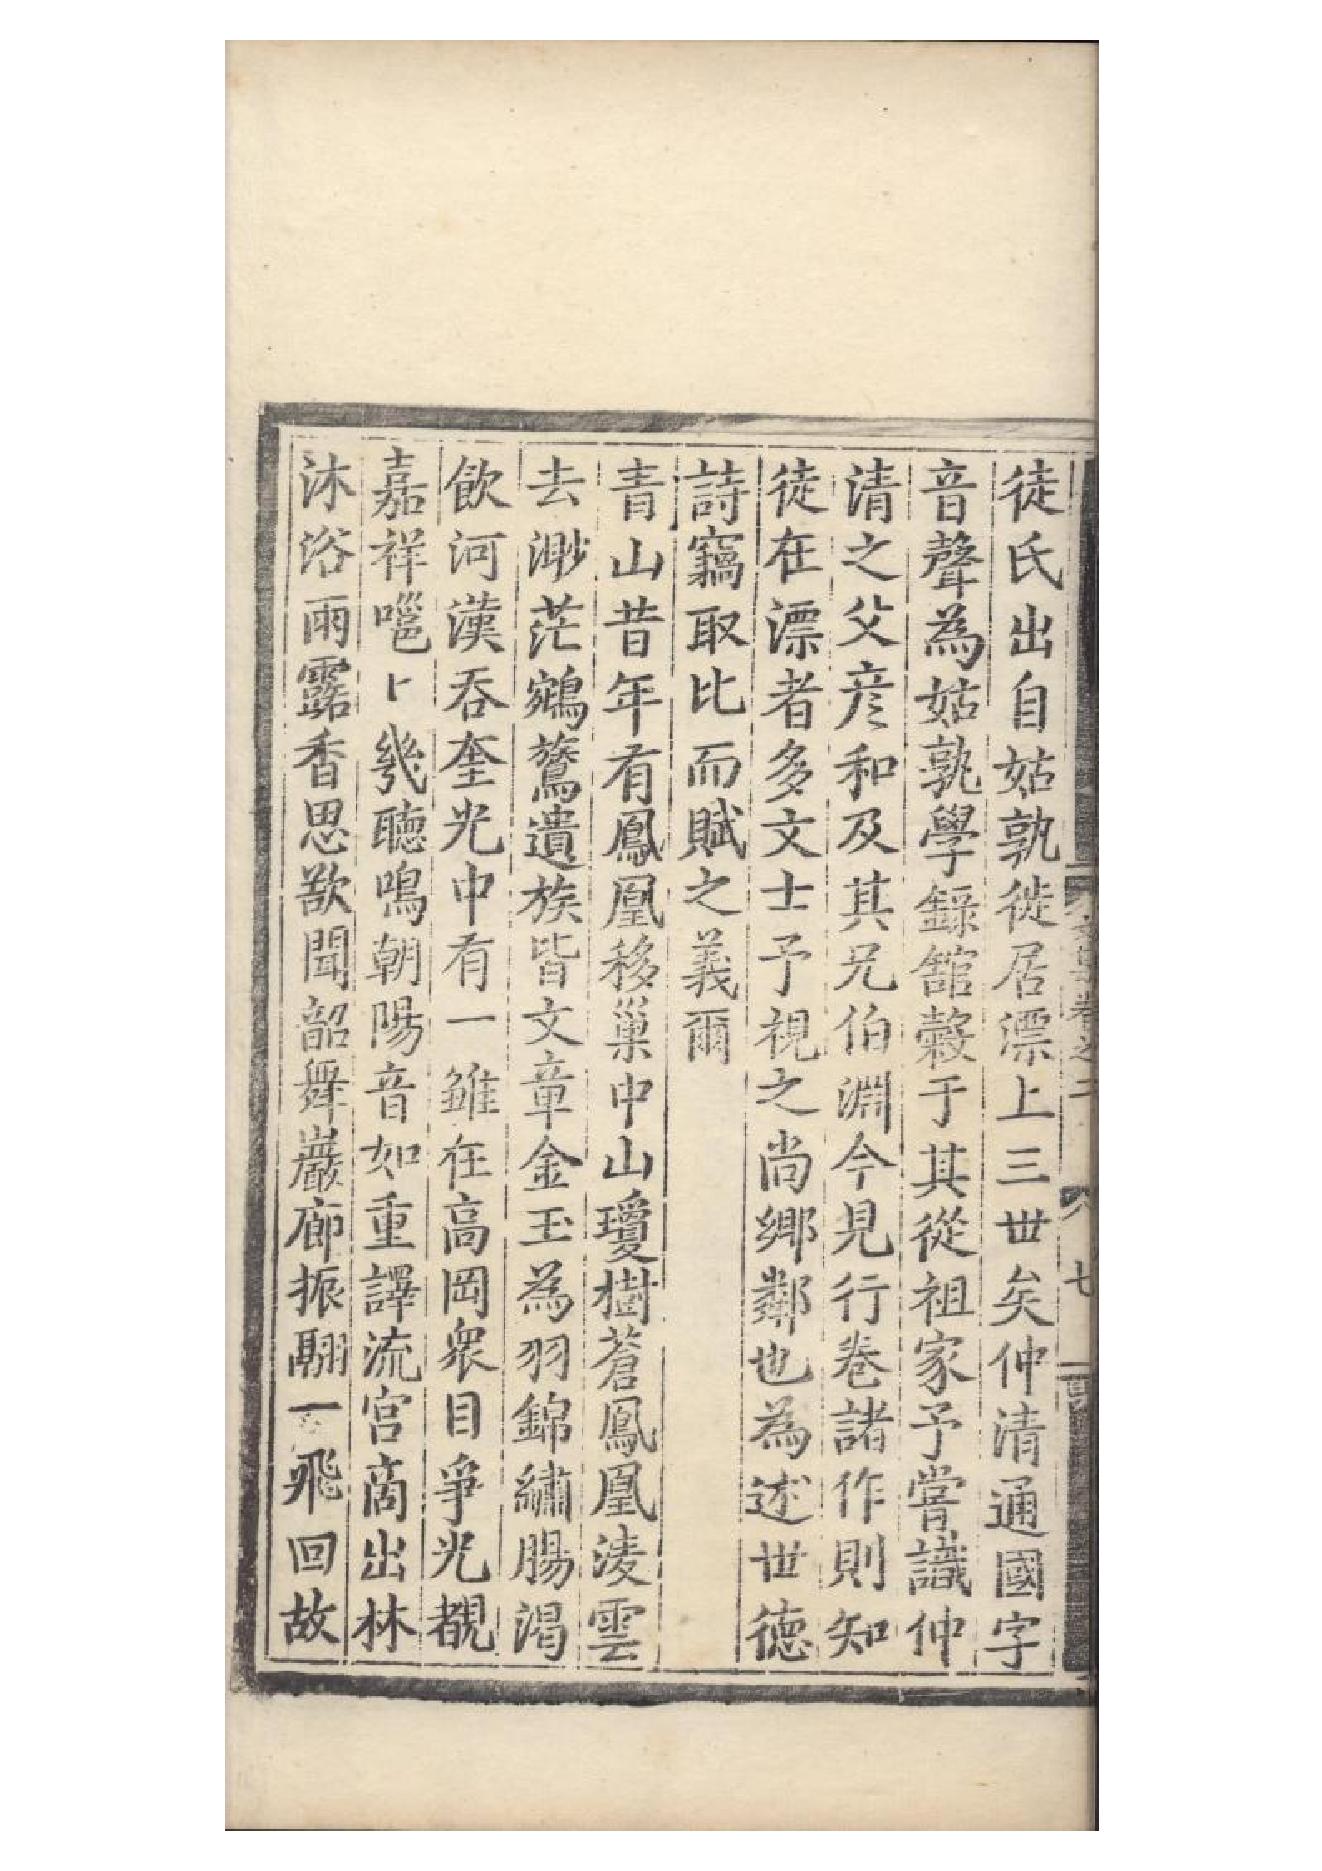 徒氏出自姑孰徙居漂上三世矣仲清通國字
音聲為姑孰學録舘糓于其從祖家予嘗識仲
清之父彦和及其兄伯淵今見行卷諸作則知
徒在漂者多文士予視之尚鄉鄰也為述世德
詩竊取比而賦之義爾
青山昔年有鳳凰移巢中山瓊樹蒼鳳凰淩雲
去渺茫鵷鶱遺族皆文章金玉為羽錦繡腸渴
飲河漢吞奎光中有一雏在高岡衆目爭光覩
嘉祥噰卜幾聽鳴朝陽音如重譯流宫啇出林
沐浴雨露香思歆聞韶舞巖廊振翮一飛回故